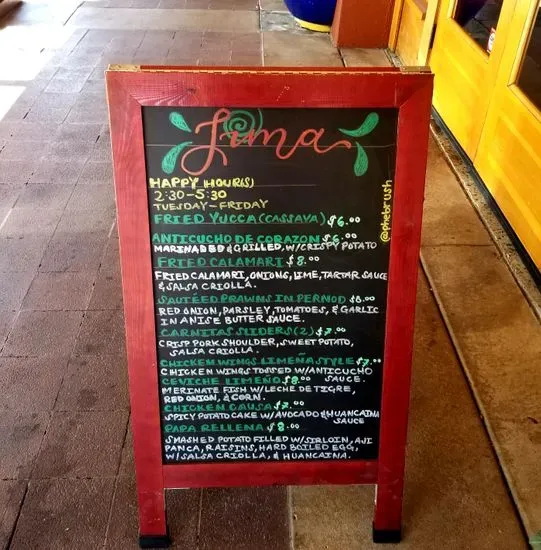 Lima
HAPPY HOUR(S)
2:30-5:30
TUESDAY-FRIDAY
@phebrush
FRIED YUCCA (CASSAVA) $6.00
ANTICUCHO DE CORAZON $6.00
MARINADED & GRILLED, W/CRISPY POTATO
FRIED CALAMARI $8.00
FRIED CALAMARI, ONIONS, LIME, TARTAR SAUCE
& SALSA CRIOLLA.
SAUTÉED PRAWNS IN PERNOD $8.00
RED ONION, PARSLEY, TOMATOES, & GARLIC
IN ANISE BUTTER SAUCE.
CARNITAS SLIDERS (2) $7.00
CRISP PORK SHOULDER, SWEET POTATO,
SALSA CRIOLLA.
CHICKEN WINGS LIMEÑA STYLE $7.00
CHICKEN WINGS TOSSED W/ANTICUCHO
SAUCE.
CEVICHE LIMEÑO $8.00
MERINATE FISH W/LECHE DE TIGRE,
RED ONION, & CORN.
CHICKEN CAUSA $7.00
SPICY POTATO CAKE W/AVOCADO & HUANCAINA
SAUCE
PAPA RELLENA $8.00
SMASHED POTATO FILLED W/SIRLOIN, AJI
PANCA, RAISINS, HARD BOILED EGG,
W/SALSA CRIOLLA, & HUANCAINA.